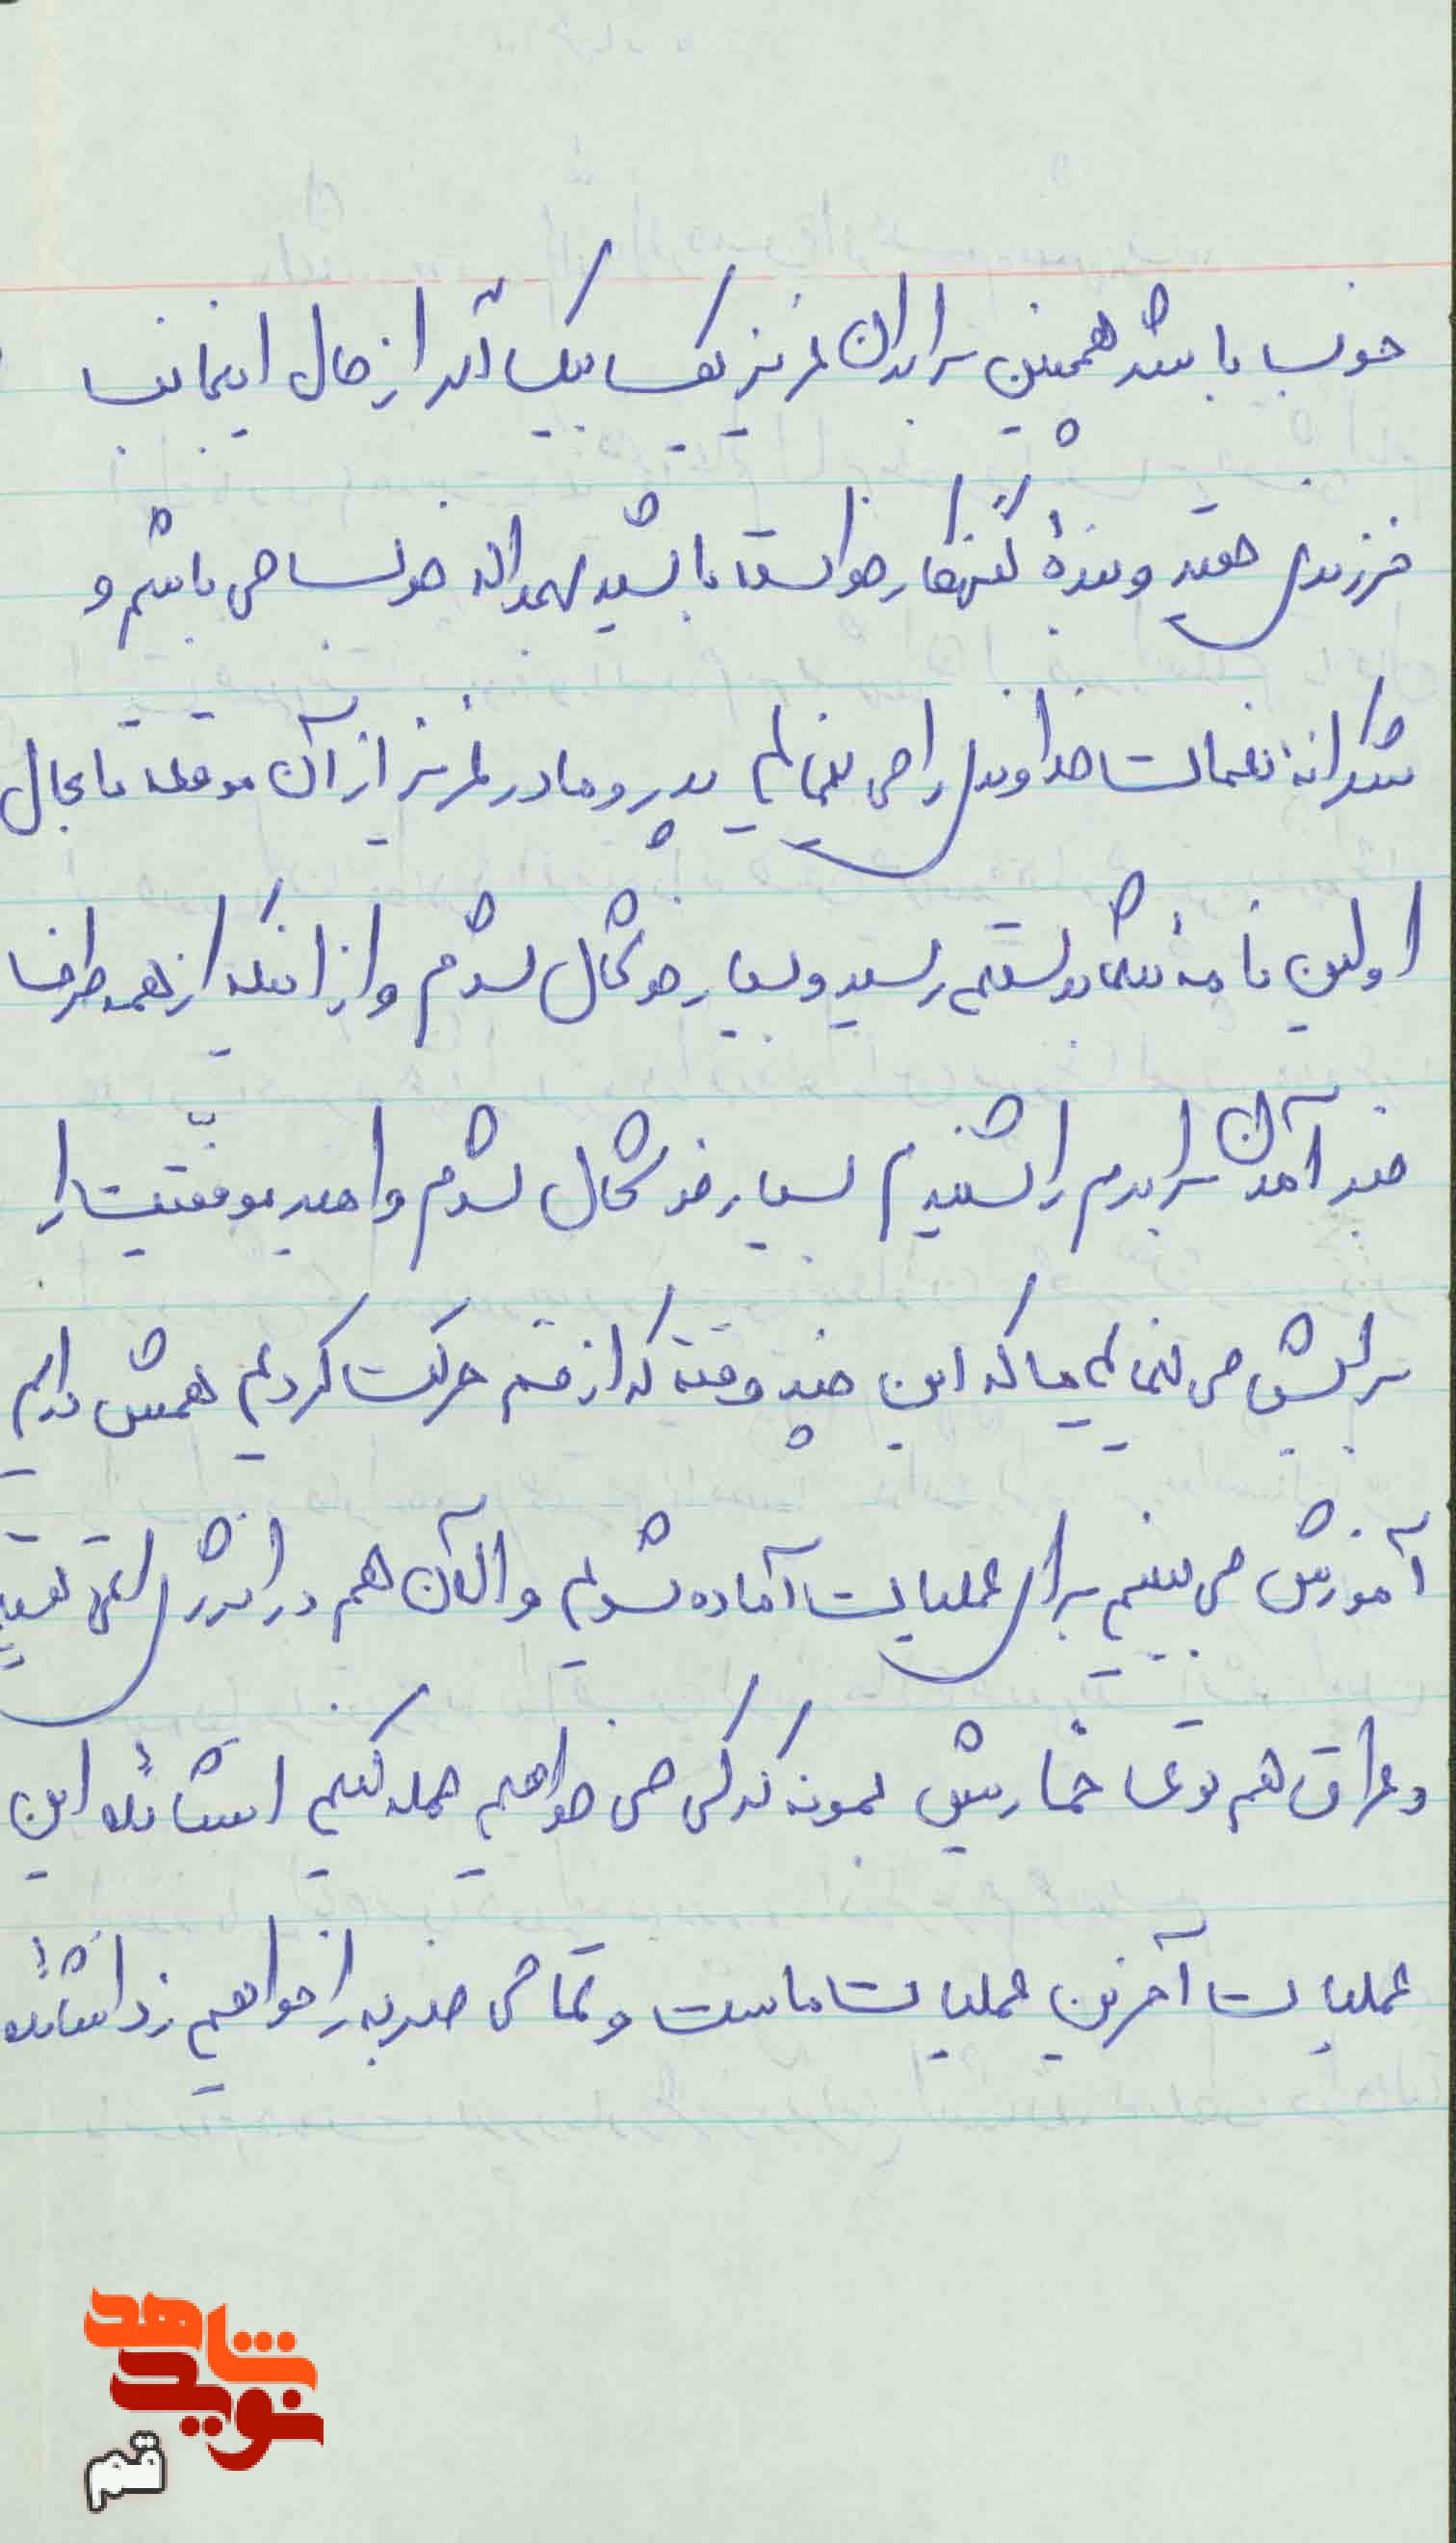 خوب باشد همچنین برادران عزیز یک یک اگر از حال اینجانب
فرزندی حقیر و بندهٔ گنهکار خواسته باشید بحمداله خوب می باشم و
شکرانهٔ نعمات خداوندی را می نمایم پدر و مادر عزیز از آن موقعه تا بحال
اولین نامهٔ شما بدستم رسید و بسیار خوشحال شدم و از اینکه از همه طرف
خبر آمدن برادرم را شنیدم بسیار خوشحال شدم و امید موفقّیت را
برایش می نمایم ما که این چند وقته که از قم حرکت کردیم همش داریم
آموزش می بینیم برای عملیات آماده شدیم و الآن هم در اندرز
و عراق هم توی خمارش بمونه که کی می خواهیم حمله کنیم انشاءالله این
عملیات آخرین عملیات ماست و تمامی ضربه را خواهیم زد انشاءالله
نوید شاهد
قم